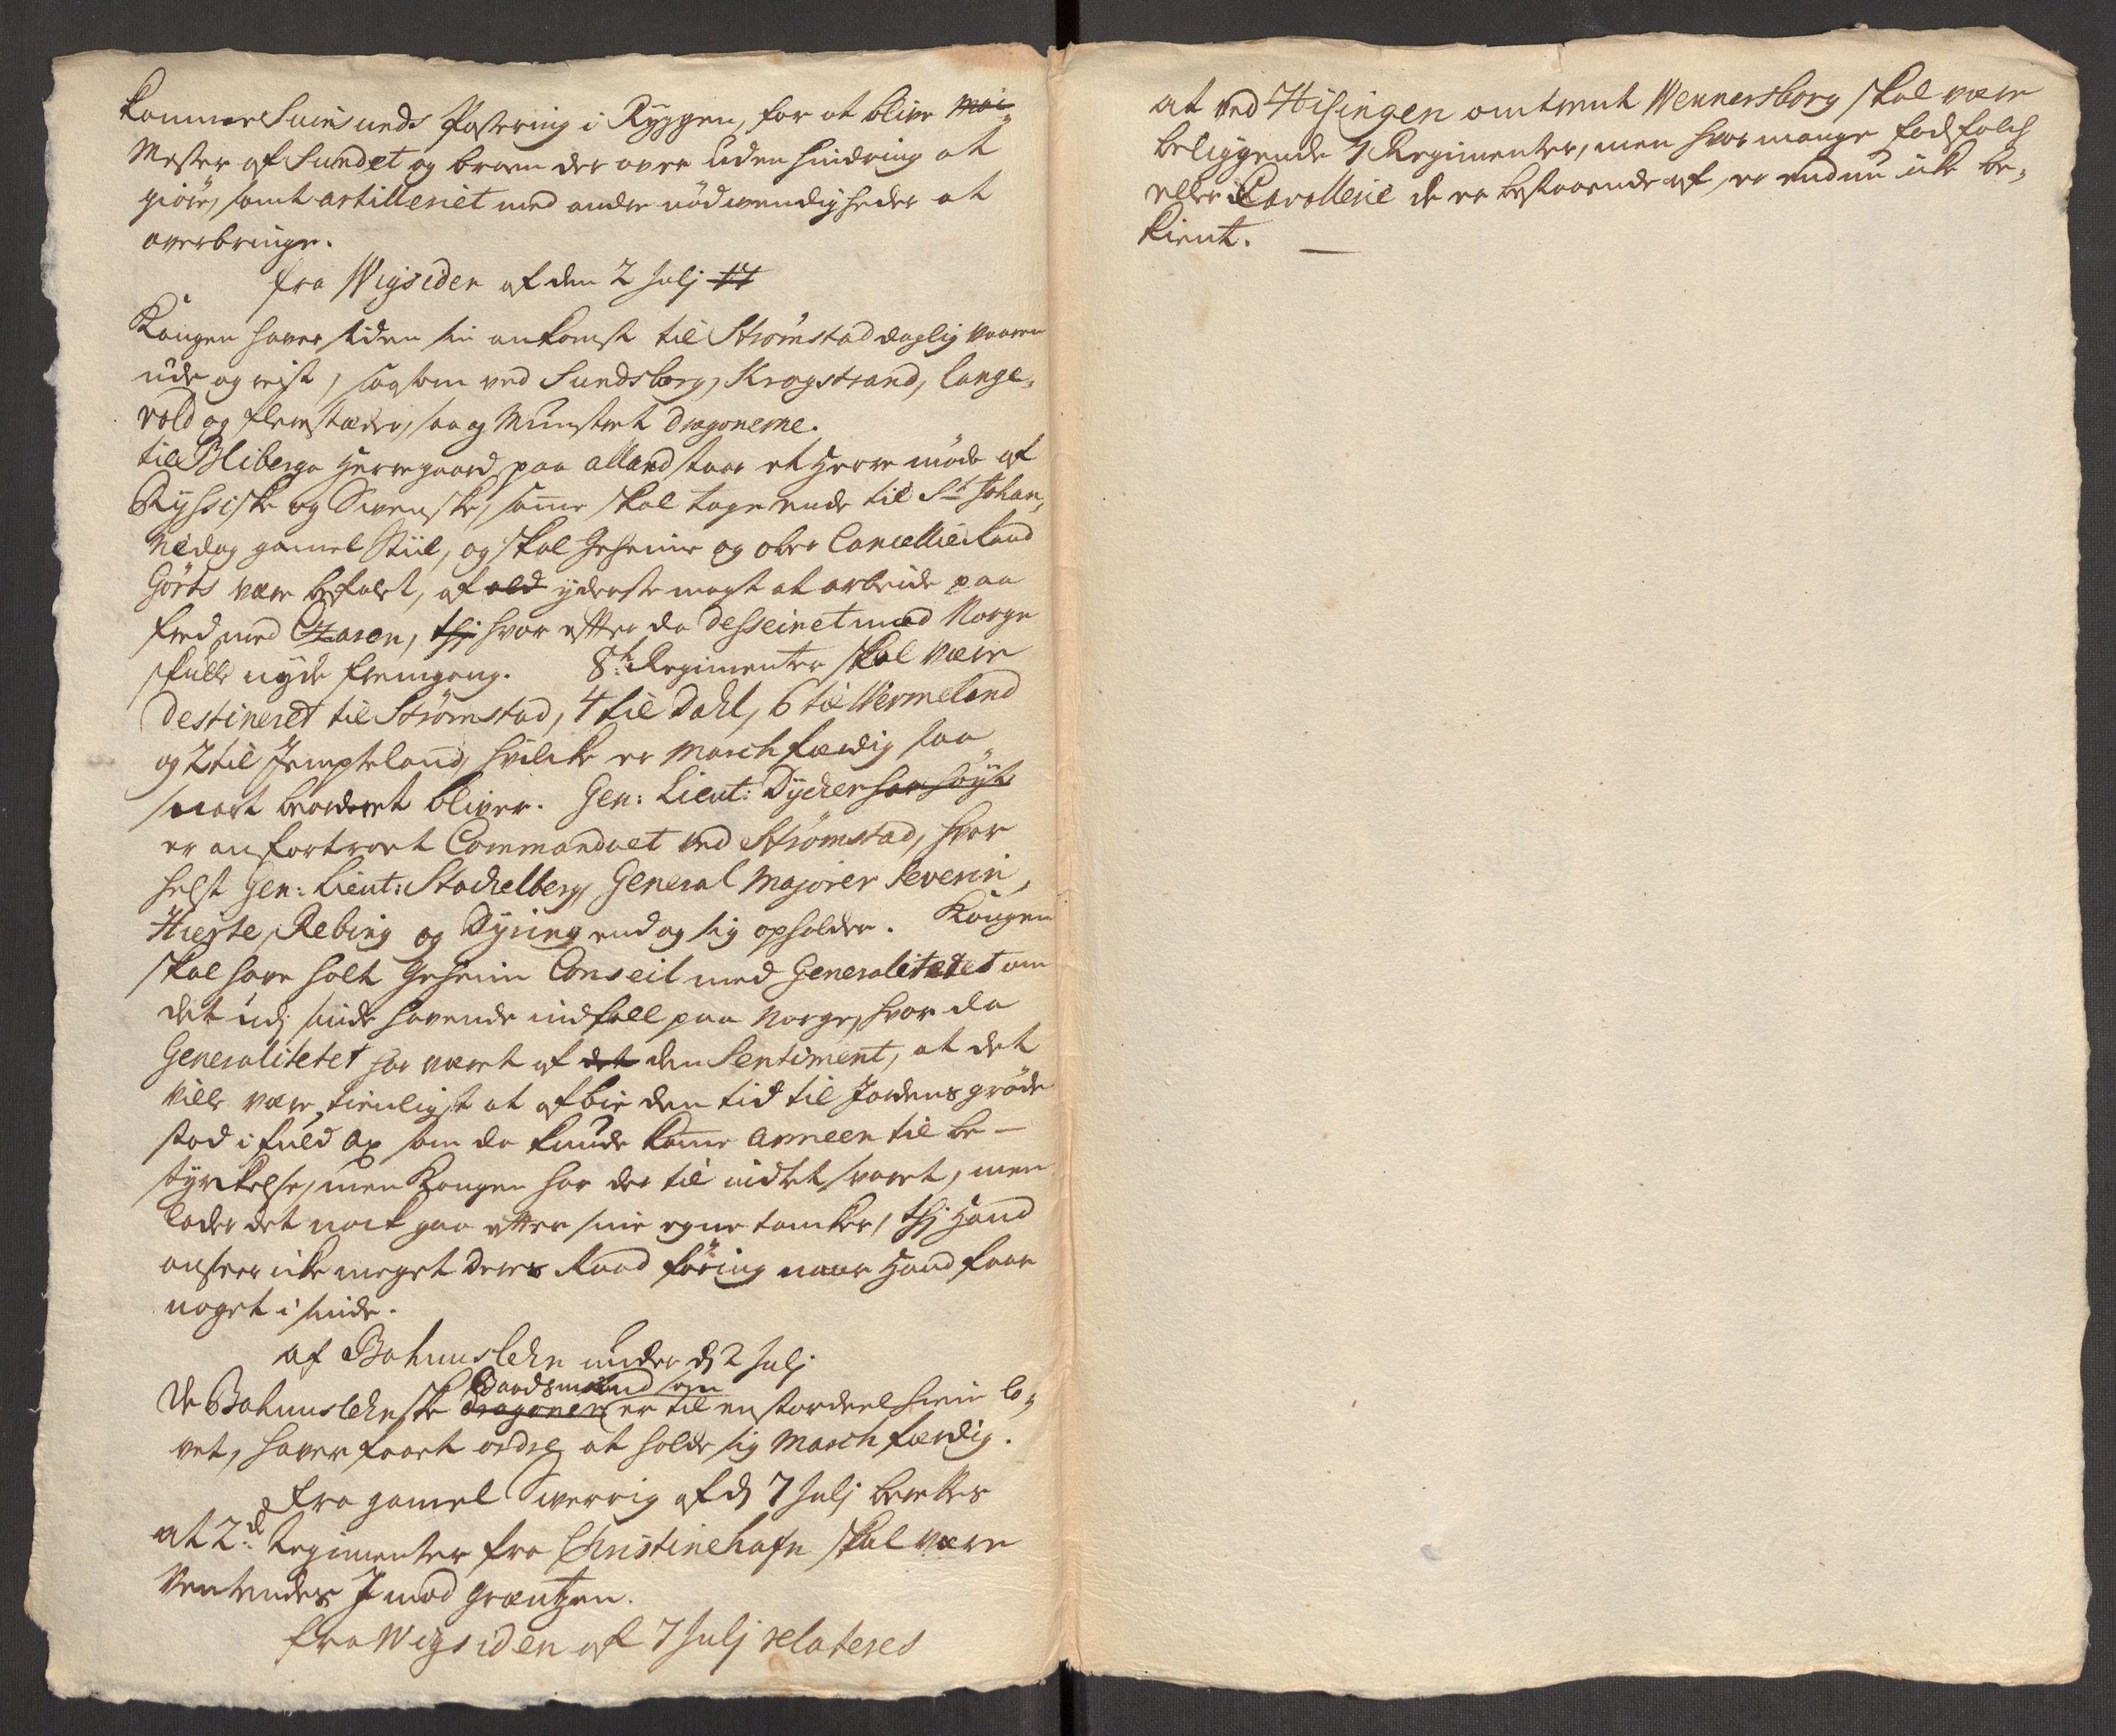 kommer Suinsunds Postering i Ryggen, for at blive Mei-
Mester af Sundet og broen der over uden hindring at
giöre, samt artilleriet med andre nödwendigheder at
overbringe.
fra Wigsiden af den 2 Julj 17
Kongen haver siden sin ankomst til Strömstad daglig waaren
ude og reist, saasom ved Sundsborg, Krogstrand, lange-
vold og flere stæder, saa og Mynstret dragonerne.
til Bliberga Herregaard paa alland staar et Herre möde af
Ryssiske og Svenske, samme skal tage ende til St Johan-
nidag gamel Stiil, og skal Geheime og ober Cancellie Raad
Görts være befalet, af all yderste magt at arbeide paa
fred med Czaren, thj hvor effter da desseinet mod Norge
skulle nyde fremgang. 8te Regimenter skal være
destineret til Strömstad, 4 til Dahl, 6 til Wermeland
og 2 til Jempteland, hvilcke er March færdig saa
snart beordret bliver. Gen: Lieut: Dycker har höyst
er anfortroet Commandoet ved Strömstad, hvor
helst Gen: Lieut: Stackelberg, General Majorer Severin,
Hierte, Rebing og Dyring end og sig opholder. Kongen
skal have holt Geheim Conseil med Generalitetet om
det udj sinde havende indfall paa Norge, hvor da
Generalitetet har været af det den Sentiment, at det
ville være tienligst at afbie den tid til Jordens gröde
stod i fuld ax som da kunde komme armeen til be-
styrkelse, men Kongen har der til indtet svaret, men
lader det nock gaa effter sine egne tancker, thj Hand
anseer icke meget deres Raad föring naar Hand faar
noget i sinde.
af Bahuuslehn under d 2 Julj
Baadsmænd som
de Bahuuslehnske dragoner er til en stordeel hiem lo-
vet, haver faaet ordre at holde sig March færdig.
fra gamel Swerrig af d 7 Julj berettes
at 2de Regimenter fra Christinehafn skal være
Ventendes J mod Græntzen.
fra Wigsiden af 7 Julj relateres
at ved Hisingen omtrent Wennersborg skal være
beliggende 7 Regimenter, men hvor mange fodfolck
eller Cavallerie de er bestaaende af, er endnu icke be-
kient.